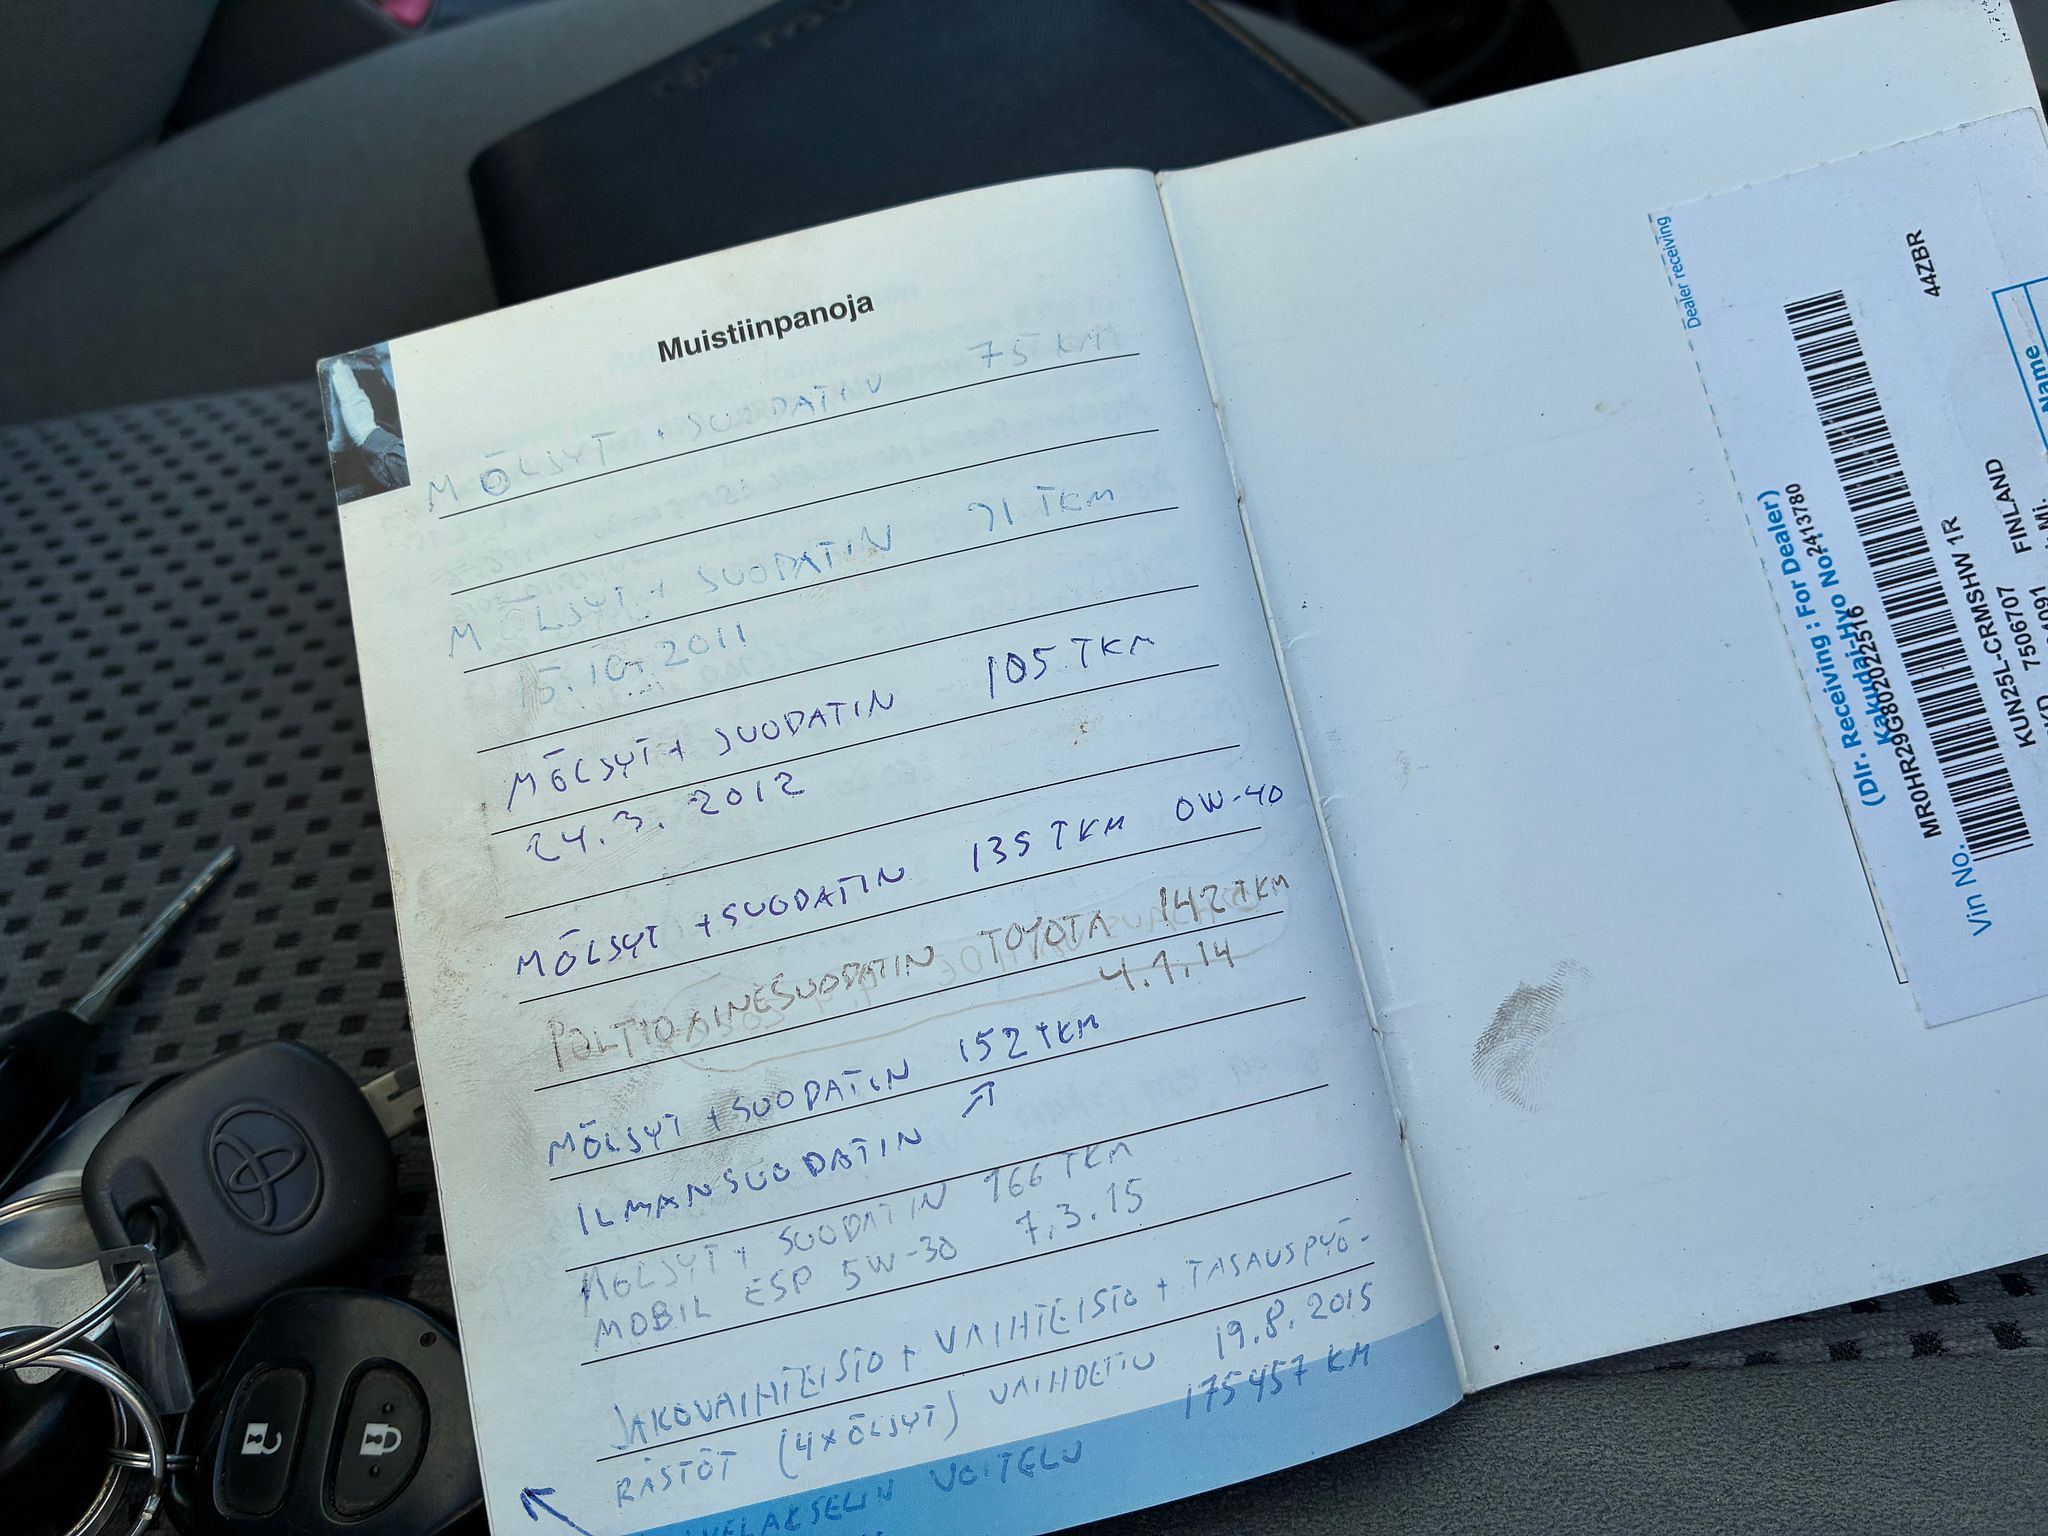 Muistiinpanoja
MÖLJYT + SUODATIN 75 KM
MÖLJYT + SUODATIN 91 TKM
15.10.2011
MÖLJYT + SUODATIN 105 TKM
24.3.2012
MÖLJYT + SUODATIN 135 TKM 0W-40
POLTTOAINESUODATIN TOYOTA 142 TKM
4.1.14
MÖLJYT + SUODATIN 152 TKM
ILMANSUODATIN ↗
MÖLJYT + SUODATIN 166 TKM
MOBIL ESP 5W-30 7.3.15
JAKOVAIHTEISTO + VAIHTEISTO + TASAUSPYÖ-
RÄSTÖT (4xÖLJYT) VAIHDETTU 19.8.2015
175457 KM
VOITELU
Dealer receiving
(Dlr. Receiving : For Dealer)
Kakudai-Hyo No. 2413780
MR0HR29G802022516
44ZBR
Vin No.
KUN25L-CRMSHW 1R
7506707 FINLAND
Name